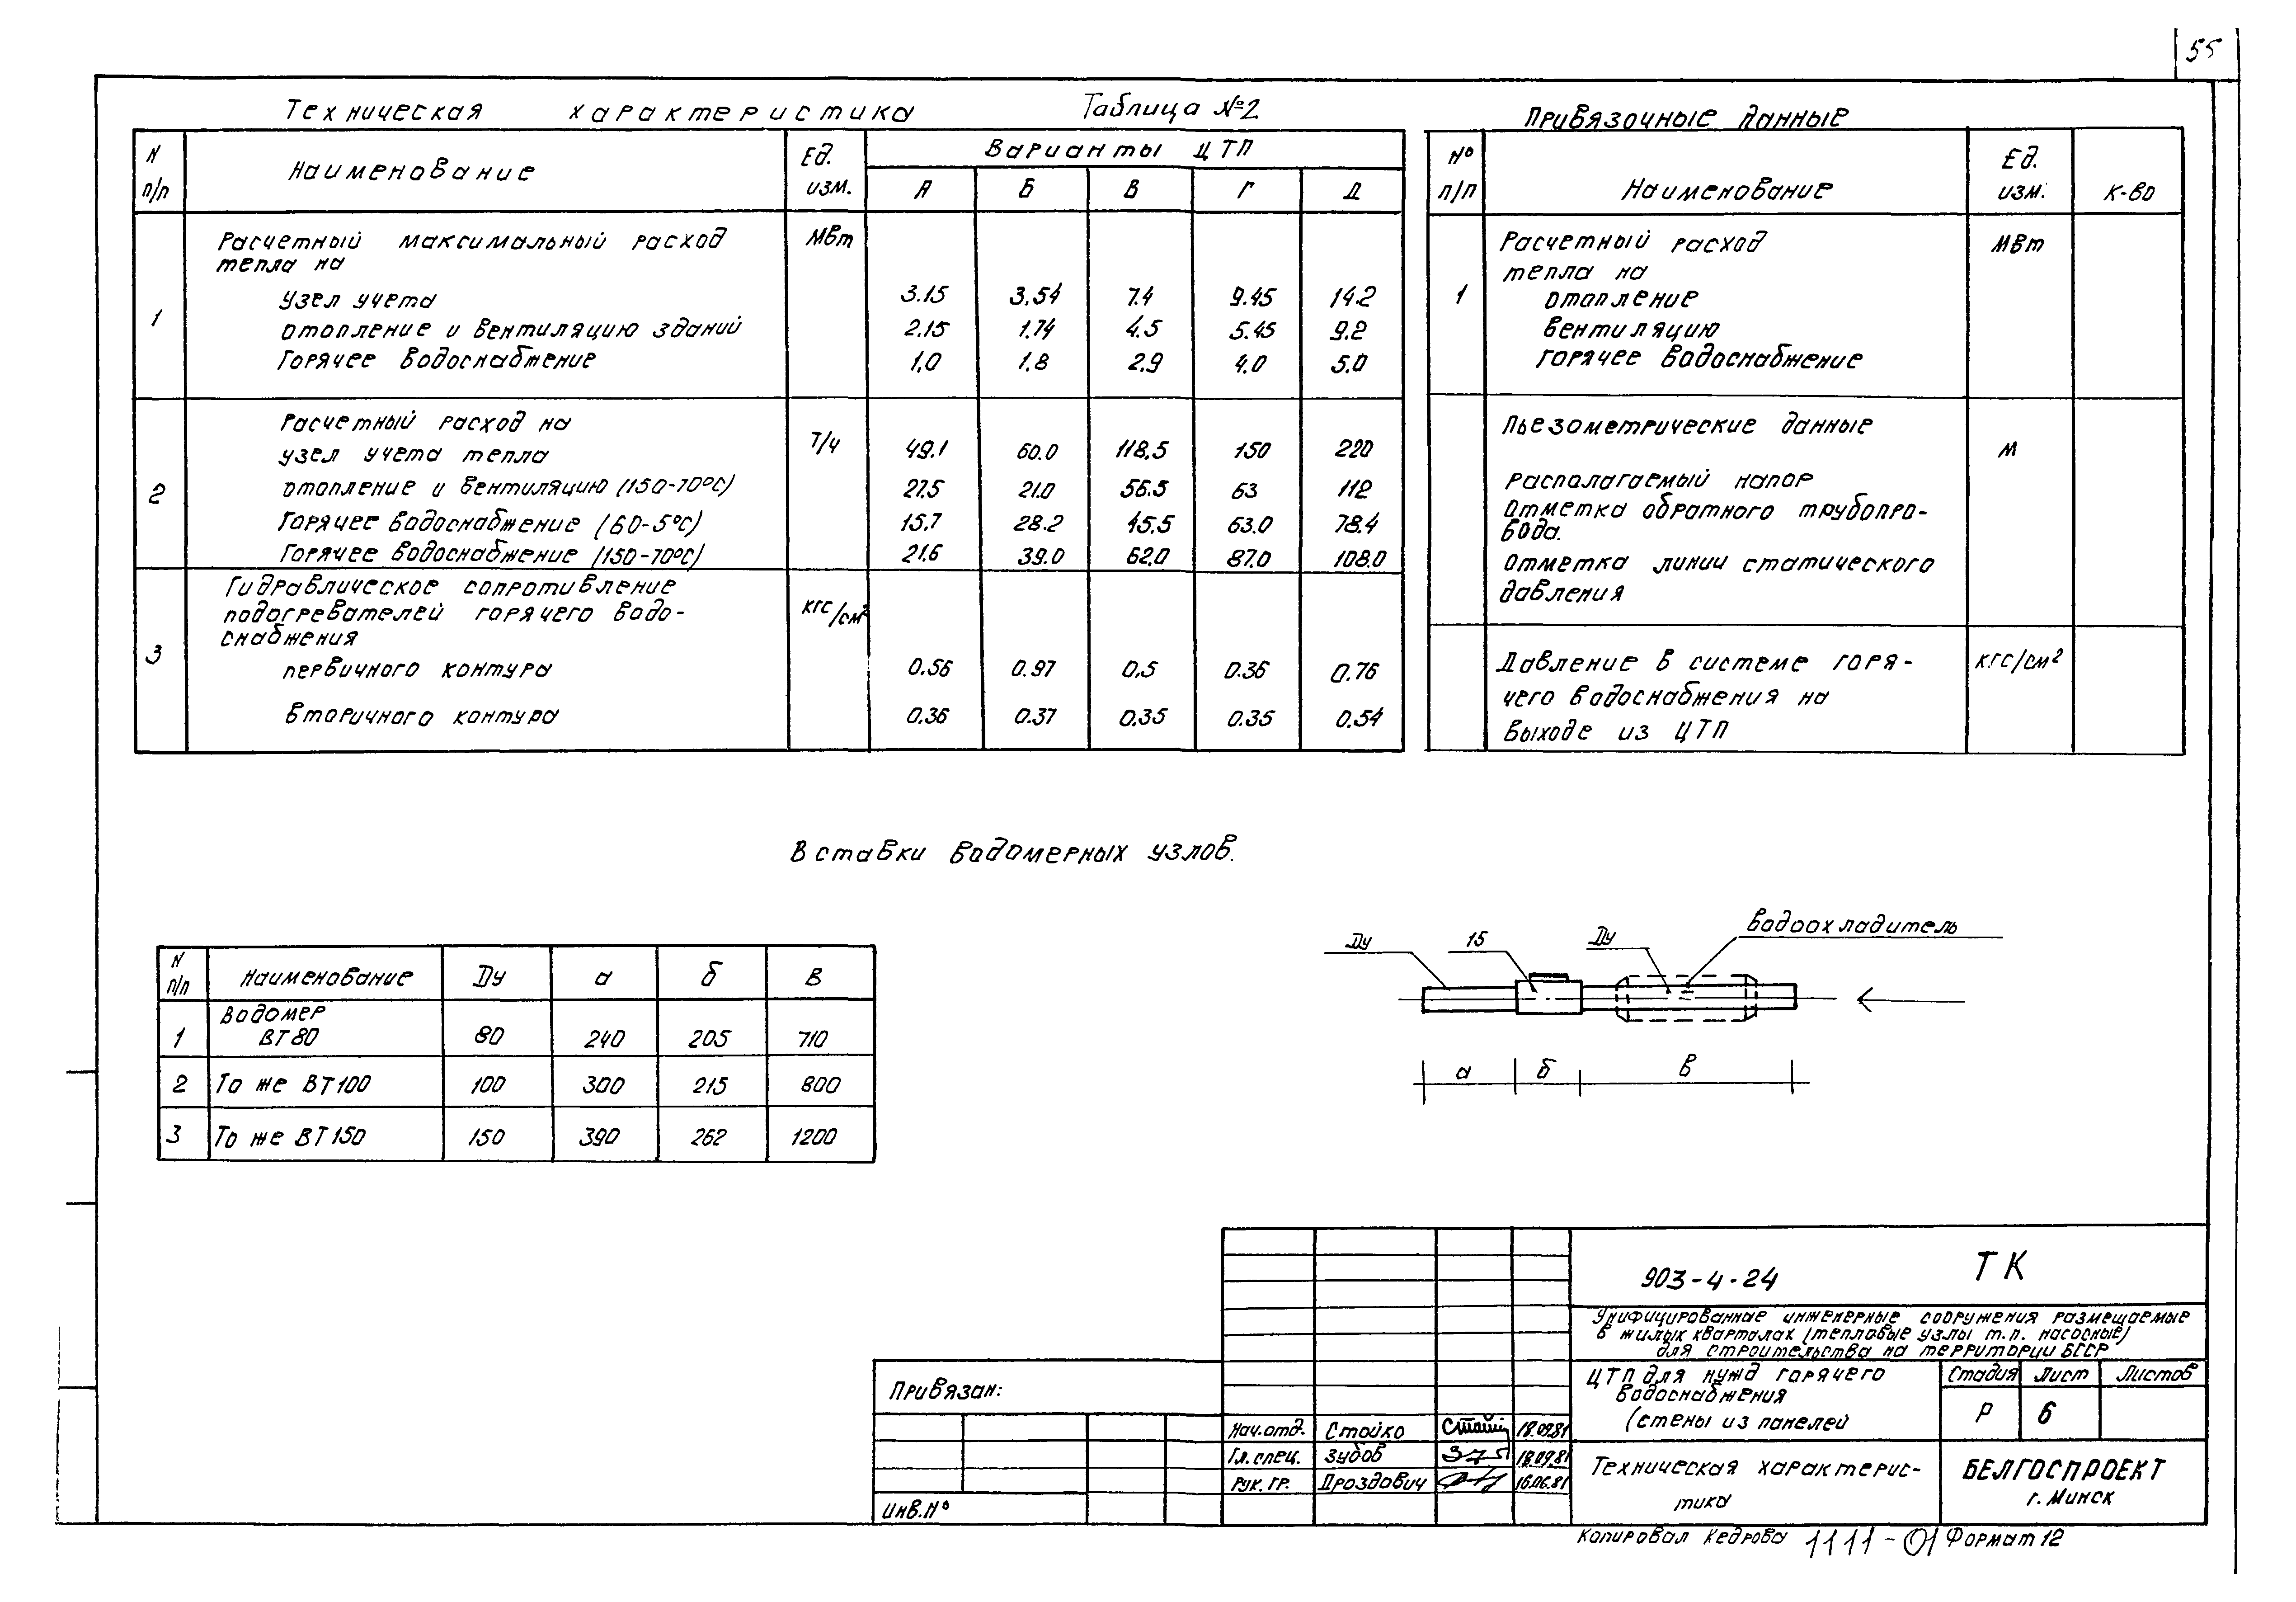 55
Техническая характеристика Таблица №2
N п/п Наименование Ед. изм. Варианты ЦТП
А Б В Г Д
1 Расчетный максимальный расход МВт
тепла на
Узел учета 3.15 3.54 7.4 9.45 14.2
отопление и вентиляцию зданий 2.15 1.74 4.5 5.45 9.2
Горячее водоснабжение 1,0 1.8 2.9 4.0 5.0
2 Расчетный расход на Т/ч
узел учета тепла 49.1 60.0 118.5 150 220
отопление и вентиляцию (150-70°С) 27.5 21.0 56.5 63 112
Горячее водоснабжение (60-5°С) 15.7 28.2 45.5 63.0 78.4
Горячее водоснабжение (150-70°С) 21.6 39.0 62.0 87.0 108.0
3 Гидравлическое сопротивление кгс/см²
подогревателей горячего водо-
снабжения
первичного контура 0.56 0.97 0.5 0.36 0.76
вторичного контура 0.36 0.37 0.35 0.35 0.54
Привязочные данные
№ п/п Наименование Ед. изм. К-во
1 Расчетный расход МВт
тепла на
отопление
вентиляцию
горячее водоснабжение
Пьезометрические данные м
Располагаемый напор
Отметка обратного трубопро-
вода.
Отметка линии статического
давления
Давление в системе горя- кгс/см²
чего водоснабжения на
выходе из ЦТП
Вставки водомерных узлов.
N п/п Наименование Ду а б в
1 Водомер
ВТ80 80 240 205 710
2 То же ВТ100 100 300 215 800
3 То же ВТ150 150 390 262 1200
Ду 15 Ду водоохладитель
а б в
903-4-24 ТК
Унифицированные инженерные сооружения размещаемые
в жилых кварталах (тепловые узлы т.п. насосные)
для строительства на территории БССР
Привязан:
Инв.№
Нач.отд. Стойко 18.09.81
Гл.спец. Зубов 18.09.81
Рук.гр. Дроздович 16.06.81
ЦТП для нужд горячего
водоснабжения
(стены из панелей
Стадия Лист Листов
Р 6
Техническая характерис-
тика
БЕЛГОСПРОЕКТ
г. Минск
Копировал Кедрова 1111-01 Формат 12